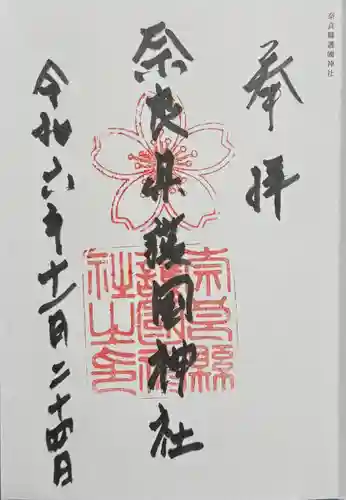 奈良縣護國神社
奉拝
奈良県護国神社
奈良縣護國神社之印
令和六年十一月二十四日